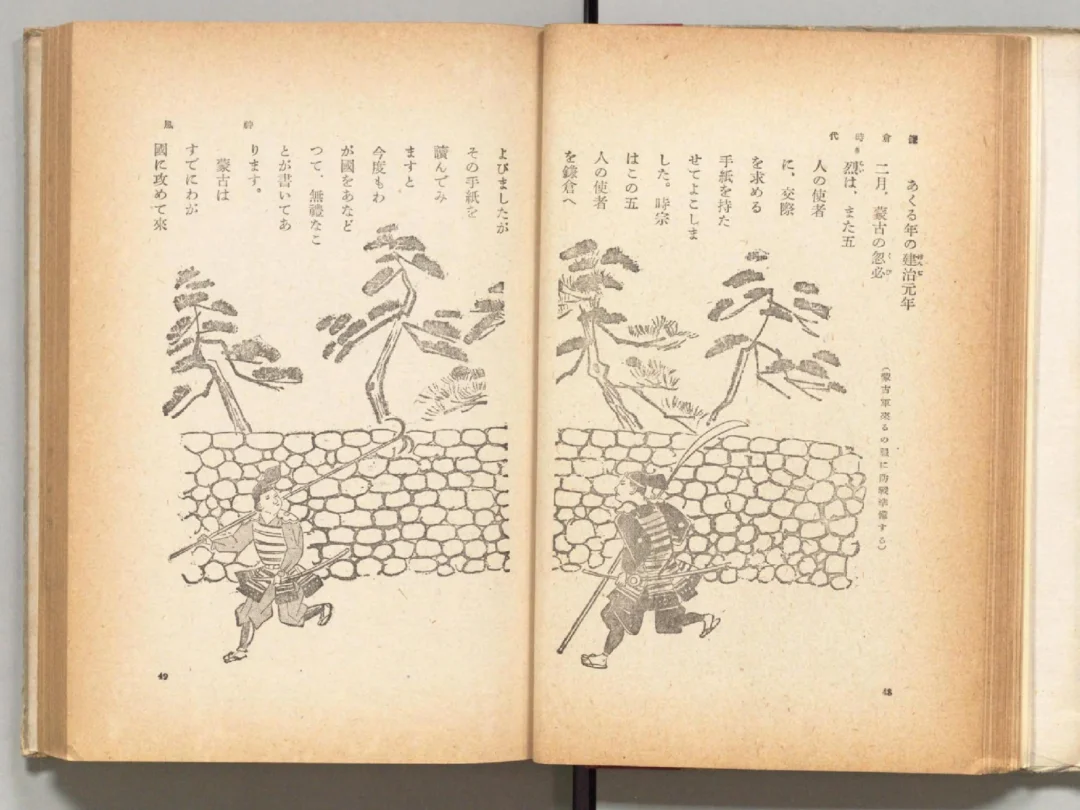 鎌倉時代
あくる年の建治元年
二月、蒙古の忽必
烈は、また五
人の使者
に、交際
を求める
手紙を持た
せてよこしま
した。時宗
はこの五
人の使者
を鎌倉へ
(蒙古軍來るの報に防戰準備する)
48
神風
よびましたが
その手紙を
讀んでみ
ますと
今度もわ
が國をあなど
つて、無禮なこ
とが書いてあ
ります。
蒙古は
すでにわが
國に攻めて來
49